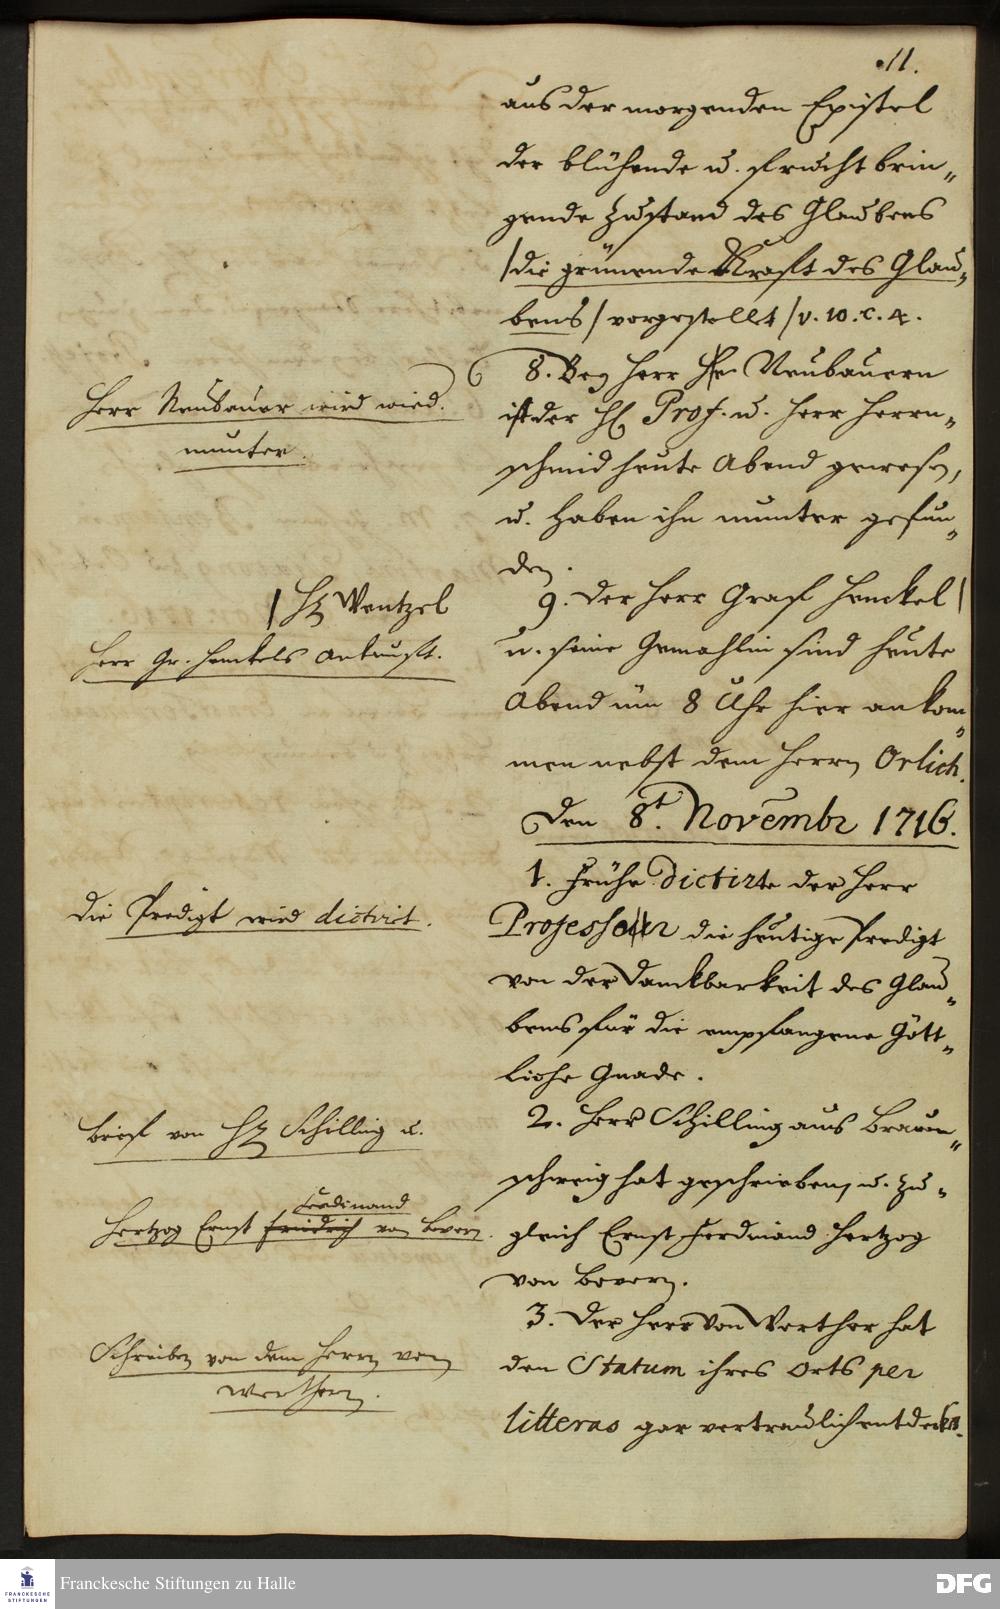 11.
aus der morgenden Epistel
der blühende u. frucht brin„
gende Zustand des Glaubens
/die grünende Krafft des Glau„
bens/ vorgestellt /v. 10. c. 4.
8. Bey Herr Neubauern
ist der H. Prof. u. Herr Herrn„
schmid heute Abend gewesen,
u. haben ihn munter gefun„
den.
9. Der Herr Graf Henckel
u. seine Gemahlin sind heute
Abend üm 8 Uhr hier ankom„
men nebst dem Herrn Orlich.
Den 8t. Novembr 1716.
1. Frühe dictirte der Herr
Professor die heutige Predigt
von der Danckbarkeit des Glau„
bens für die empfangene Gött„
liche Gnade.
2. Herr Schilling aus Braun„
schweig hat geschrieben, u. zu„
gleich Ernst Ferdinand Hertzog
von Bevern.
3. Der Herr von Werther hat
den Statum ihres Orts per
litteras gar vertraulich entdecket.
Herr Neubauer wird wied.
munter.
/ H. Wentzel
Herr Gr. Henckels Ankunfft.
Die Predigt wird dictirt.
Brief von H. Schilling u.
Ferdinand
Hertzog Ernst Friedrich von Bevern.
Schreiben von dem Herrn von
Werthern.
Franckesche Stiftungen zu Halle
FRANCKESCHE
STIFTUNGEN
DFG